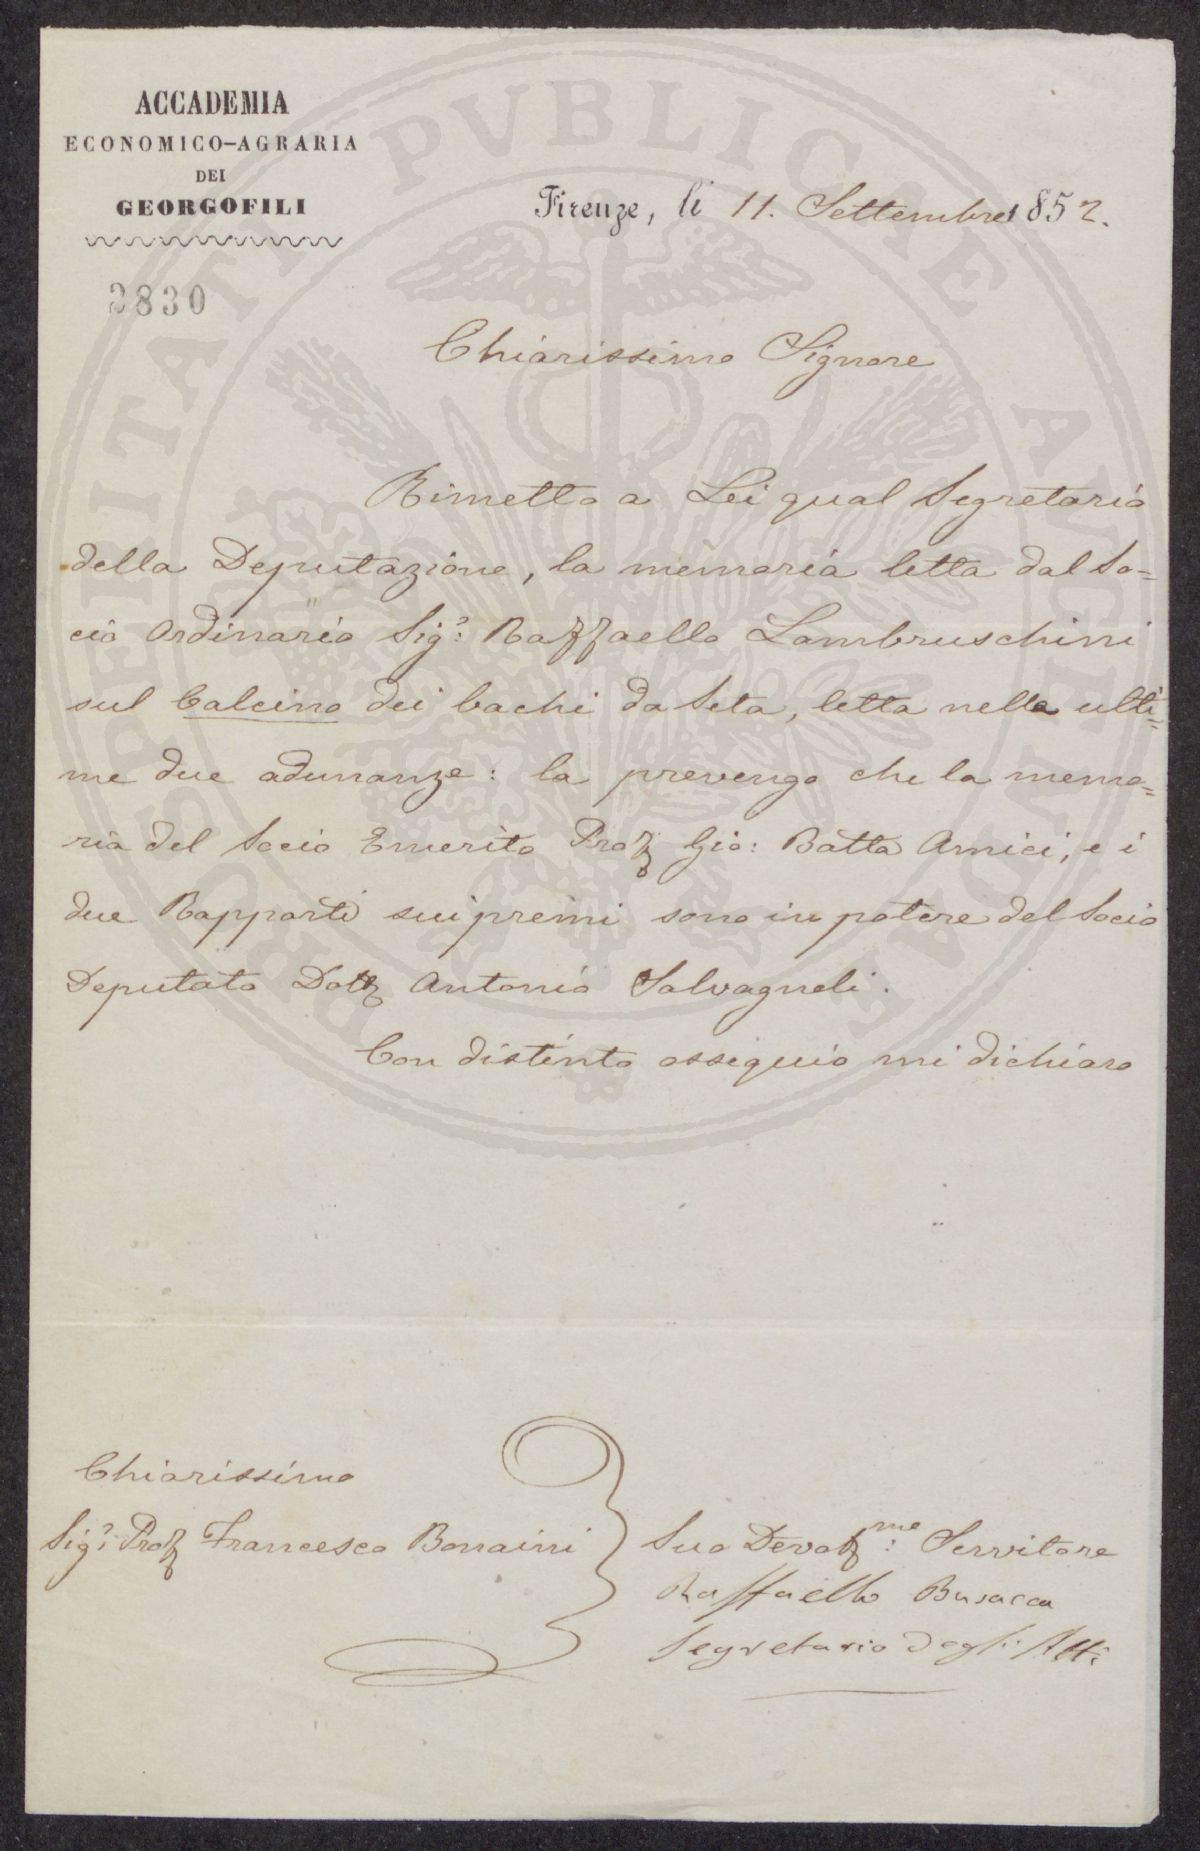 ACCADEMIA
ECONOMICO-AGRARIA
DEI
GEORGOFILI
Firenze, li 11. Settembre 1852.
2830
Chiarissimo Signore
Rimetto a Lei qual Segretario
della Deputazione, la memoria letta dal So=
cio Ordinario Sig.r Raffaello Lambruschini
sul Calcino dei bachi da Seta, letta nelle ulti=
me due adunanze: la prevengo che la memo=
ria del Socio Emerito Prof Gio: Batta Amici, e i
due Rapporti sui premi sono in potere del Socio
Deputato Dott Antonio Salvagnoli.
Con distinto ossequio mi dichiaro
Chiarissimo
Sig.r Prof Francesco Bonaini
Suo Devot:me Servitore
Raffaello Busacca
Segretario degli Atti
PROSPERITATI PVBLICAE AVGENDAE